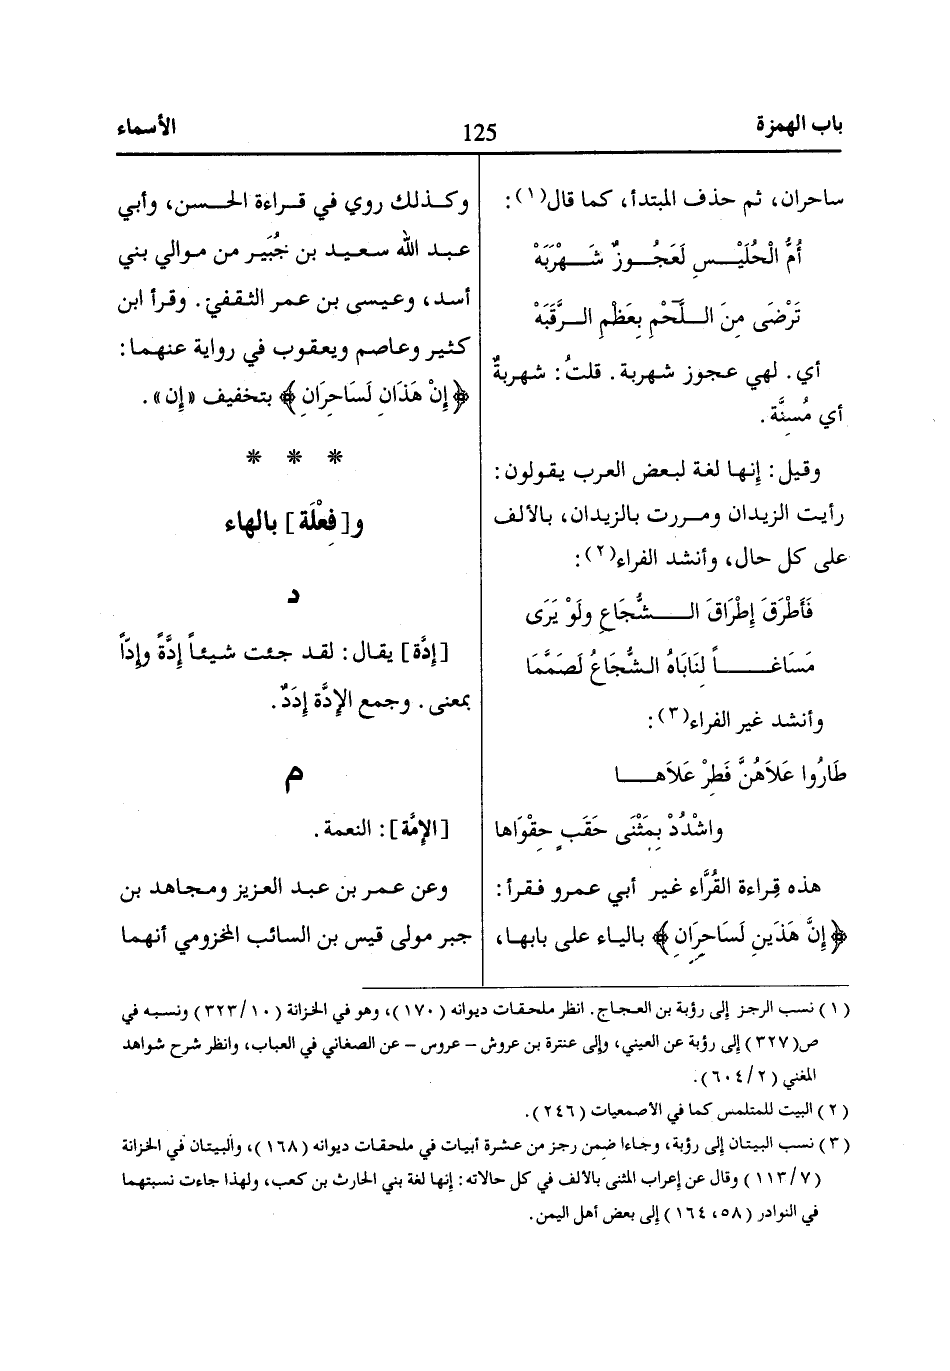 باب الهمزة
125
الأسماء
ساحران، ثم حذف المبتدأ، كما قال(١):
أُمُّ الْحُلَيْسِ لَعَجُوزٌ شَهْرَبَهْ
تَرْضَى مِنَ اللَّحْمِ بِعَظْمِ الرَّقَبَهْ
أي. لهي عجوز شهربة. قلتُ: شهربةٌ
أي مُسِنَّة.
وقيل: إنها لغة لبعض العرب يقولون:
رأيت الزيدان ومررت بالزيدان، بالألف
على كل حال، وأنشد الفراء(٢):
فَأَطْرَقَ إِطْرَاقَ الشُّجَاعِ ولَوْ يَرَى
مَسَاغاً لنَابَاهُ الشُّجَاعُ لَصَمَّمَا
وأنشد غير الفراء(٣):
طَارُوا عَلاَهُنَّ فَطِرْ عَلاَهَا
واشْدُدْ بِمَثْنَى حَقَبٍ حِقْوَاها
هذه قِراءة القُرَّاء غير أبي عمرو فقرأ:
﴿إِنَّ هَذَينِ لَسَاحِرَانِ﴾ بالياء على بابها،
وكذلك روي في قراءة الحسن، وأبي
عبد الله سعيد بن جُبَير من موالي بني
أسد، وعيسى بن عمر الثقفي. وقرأ ابن
كثير وعاصم ويعقوب في رواية عنهما:
﴿إِنْ هَذَانِ لَسَاحِرَانِ﴾ بتخفيف «إن».
* * *
و[فِعْلَة] بالهاء
د
[إدَّة] يقال: لقد جئت شيئاً إدَّةً وإدّاً
بمعنى. وجمع الإدَّة إدَدٌ.
م
[الإمَّة]: النعمة.
وعن عمر بن عبد العزيز ومجاهد بن
جبر مولى قيس بن السائب المخزومي أنهما
(١) نسب الرجز إلى رؤبة بن العجاج. انظر ملحقات ديوانه (١٧٠)، وهو في الخزانة (٣٢٣/١٠) ونسبه في
ص(٣٢٧) إلى رؤبة عن العيني، وإلى عنترة بن عروش – عروس – عن الصغاني في العباب، وانظر شرح شواهد
المغني (٦٠٤/٢).
(٢) البيت للمتلمس كما في الأصمعيات (٢٤٦).
(٣) نسب البيتان إلى رؤبة، وجاءا ضمن رجز من عشرة أبيات في ملحقات ديوانه (١٦٨)، والبيتان في الخزانة
(١١٣/٧) وقال عن إعراب المثنى بالألف في كل حالاته: إنها لغة بني الحارث بن كعب، ولهذا جاءت نسبتهما
في النوادر (٥٨، ١٦٤) إلى بعض أهل اليمن.